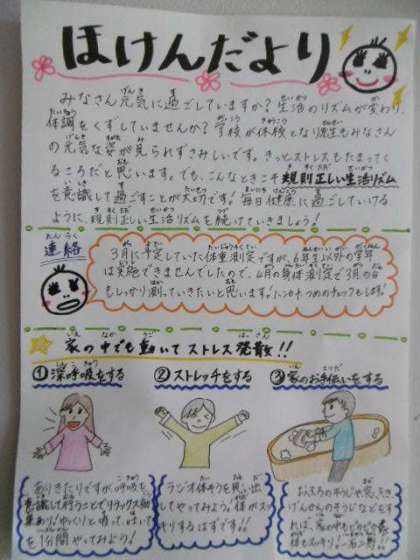 ほけんだより
みなさん元気に過ごしていますか？生活のリズムが変わり、
体調をくずしていませんか？学校が休校となり原生もみなさん
の元気な姿が見られずさみしいです。きっとストレスもたまってく
るころだと思います。でも、こんなときこそ規則正しい生活リズム
を意識して過ごすことが大切です！毎日健康に過ごしていける
ように、規則正しい生活リズムを続けていきましょう！
連絡
3月に予定していた体重測定ですが、6年生以外の学年
は実施できませんでしたので、4月の身体測定で3月の分
もしっかり測っていきたいと思います！ハンカチ つめのチェックもします！
家の中でも動いてストレス発散！！
①深呼吸をする
②ストレッチをする
③家のお手伝いをする
ありきたりですが、呼吸を
意識して行うことでリラックス効
果あり！ゆっくりと吸って、はいて
を1分間やってみよう！
ラジオ体そうを思い出
してやってみよう。体がスッ
キリするはずです！！
おふろのそうじや窓ふき、
げんかんのそうじなどをす
れば、家の中もピカピカ
体もスッキリ！一石二鳥！！